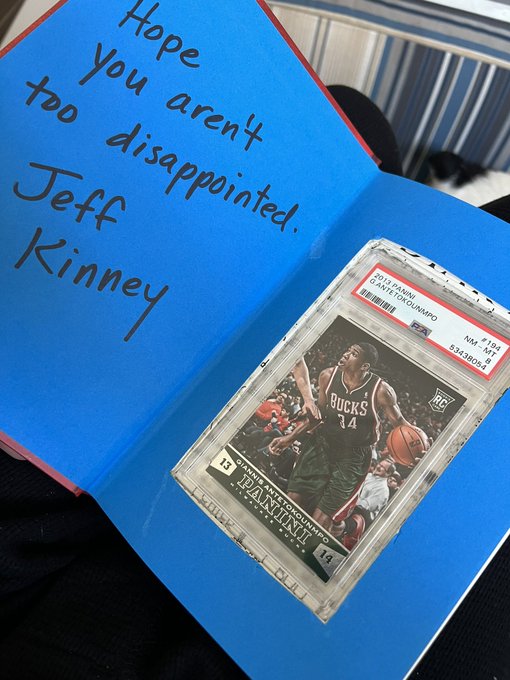 Hope
you aren't
too disappointed.
Jeff
Kinney
2013 PANINI #194
G.ANTETOKOUNMPO NM - MT
PSA 8
53438054
BUCKS
34
RC
13 GIANNIS ANTETOKOUNMPO
PANINI
MILWAUKEE BUCKS 14